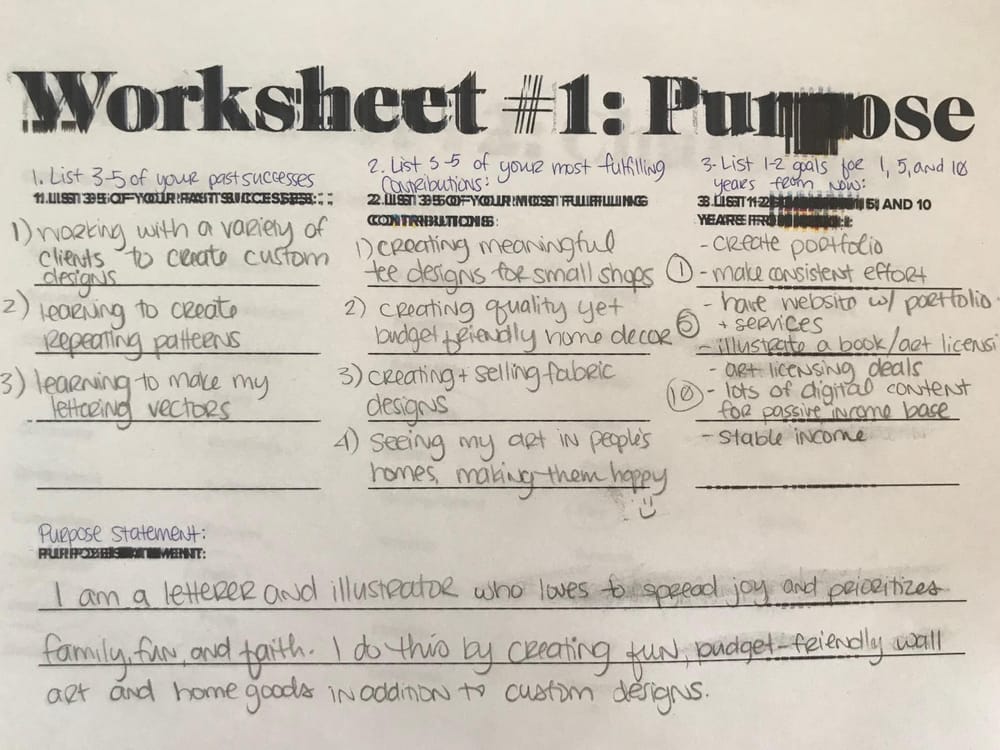 Worksheet #1: Purpose
1. List 3-5 of your past successes
1. LIST 3-5 OF YOUR PAST SUCCESSES:
1) Working with a variety of
clients to create custom
designs
2) learning to create
repeating patterns
3) learning to make my
lettering vectors
2. List 3-5 of your most fulfilling
contributions:
2. LIST 3-5 OF YOUR MOST FULFILLING
CONTRIBUTIONS:
1) creating meaningful
tee designs for small shops
2) creating quality yet
budget friendly home decor
3) creating + selling fabric
designs
4) seeing my art in people's
homes, making them happy
3. List 1-2 goals for 1, 5, and 10
years from now:
3. LIST 1-2 5, AND 10
YEARS
- create portfolio
① - make consistent effort
- have website w/ portfolio
⑤ + services
- illustrate a book/art licensi
- art licensing deals
⑩ - lots of digital content
for passive income base
- stable income
Purpose statement:
PURPOSE STATEMENT:
I am a letterer and illustrator who loves to spread joy and prioritizes
family, fun, and faith. I do this by creating fun, budget-friendly wall
art and home goods in addition to custom designs.